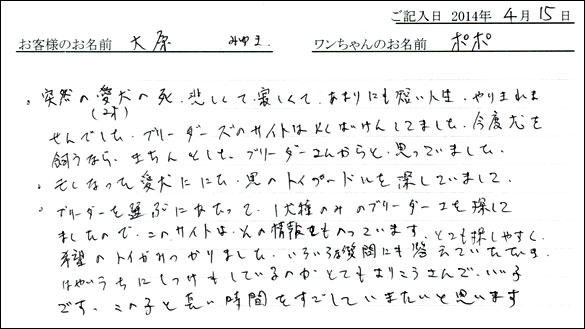 ご記入日 2014年 4月 15日
お客様のお名前 大原 みゆき. ワンちゃんのお名前 ポポ
。突然の愛犬の死、悲しくて、寂しくて、あまりにも短い人生、やりきれま
(2才)
せんでした。ブリーダーズのサイトはよくはいけんしてました。今度犬を
飼うなら、きちんとした、ブリーダーさんからと、思っていました。
。亡くなった愛犬ににた、黒のトイプードルを探していまして、
。ブリーダーを選ぶにあたって、1犬種のみのブリーダーさを探して
ましたので、このサイトは、その情報をものっています、とても探しやすく、
希望のトイがみつかりました。いろいろな質問にも答えていただいたき、
はやいうちにしつけもしているのかとてもおりこうさんで、いい子
です。この子と長い時間をすごしていきたいと思います